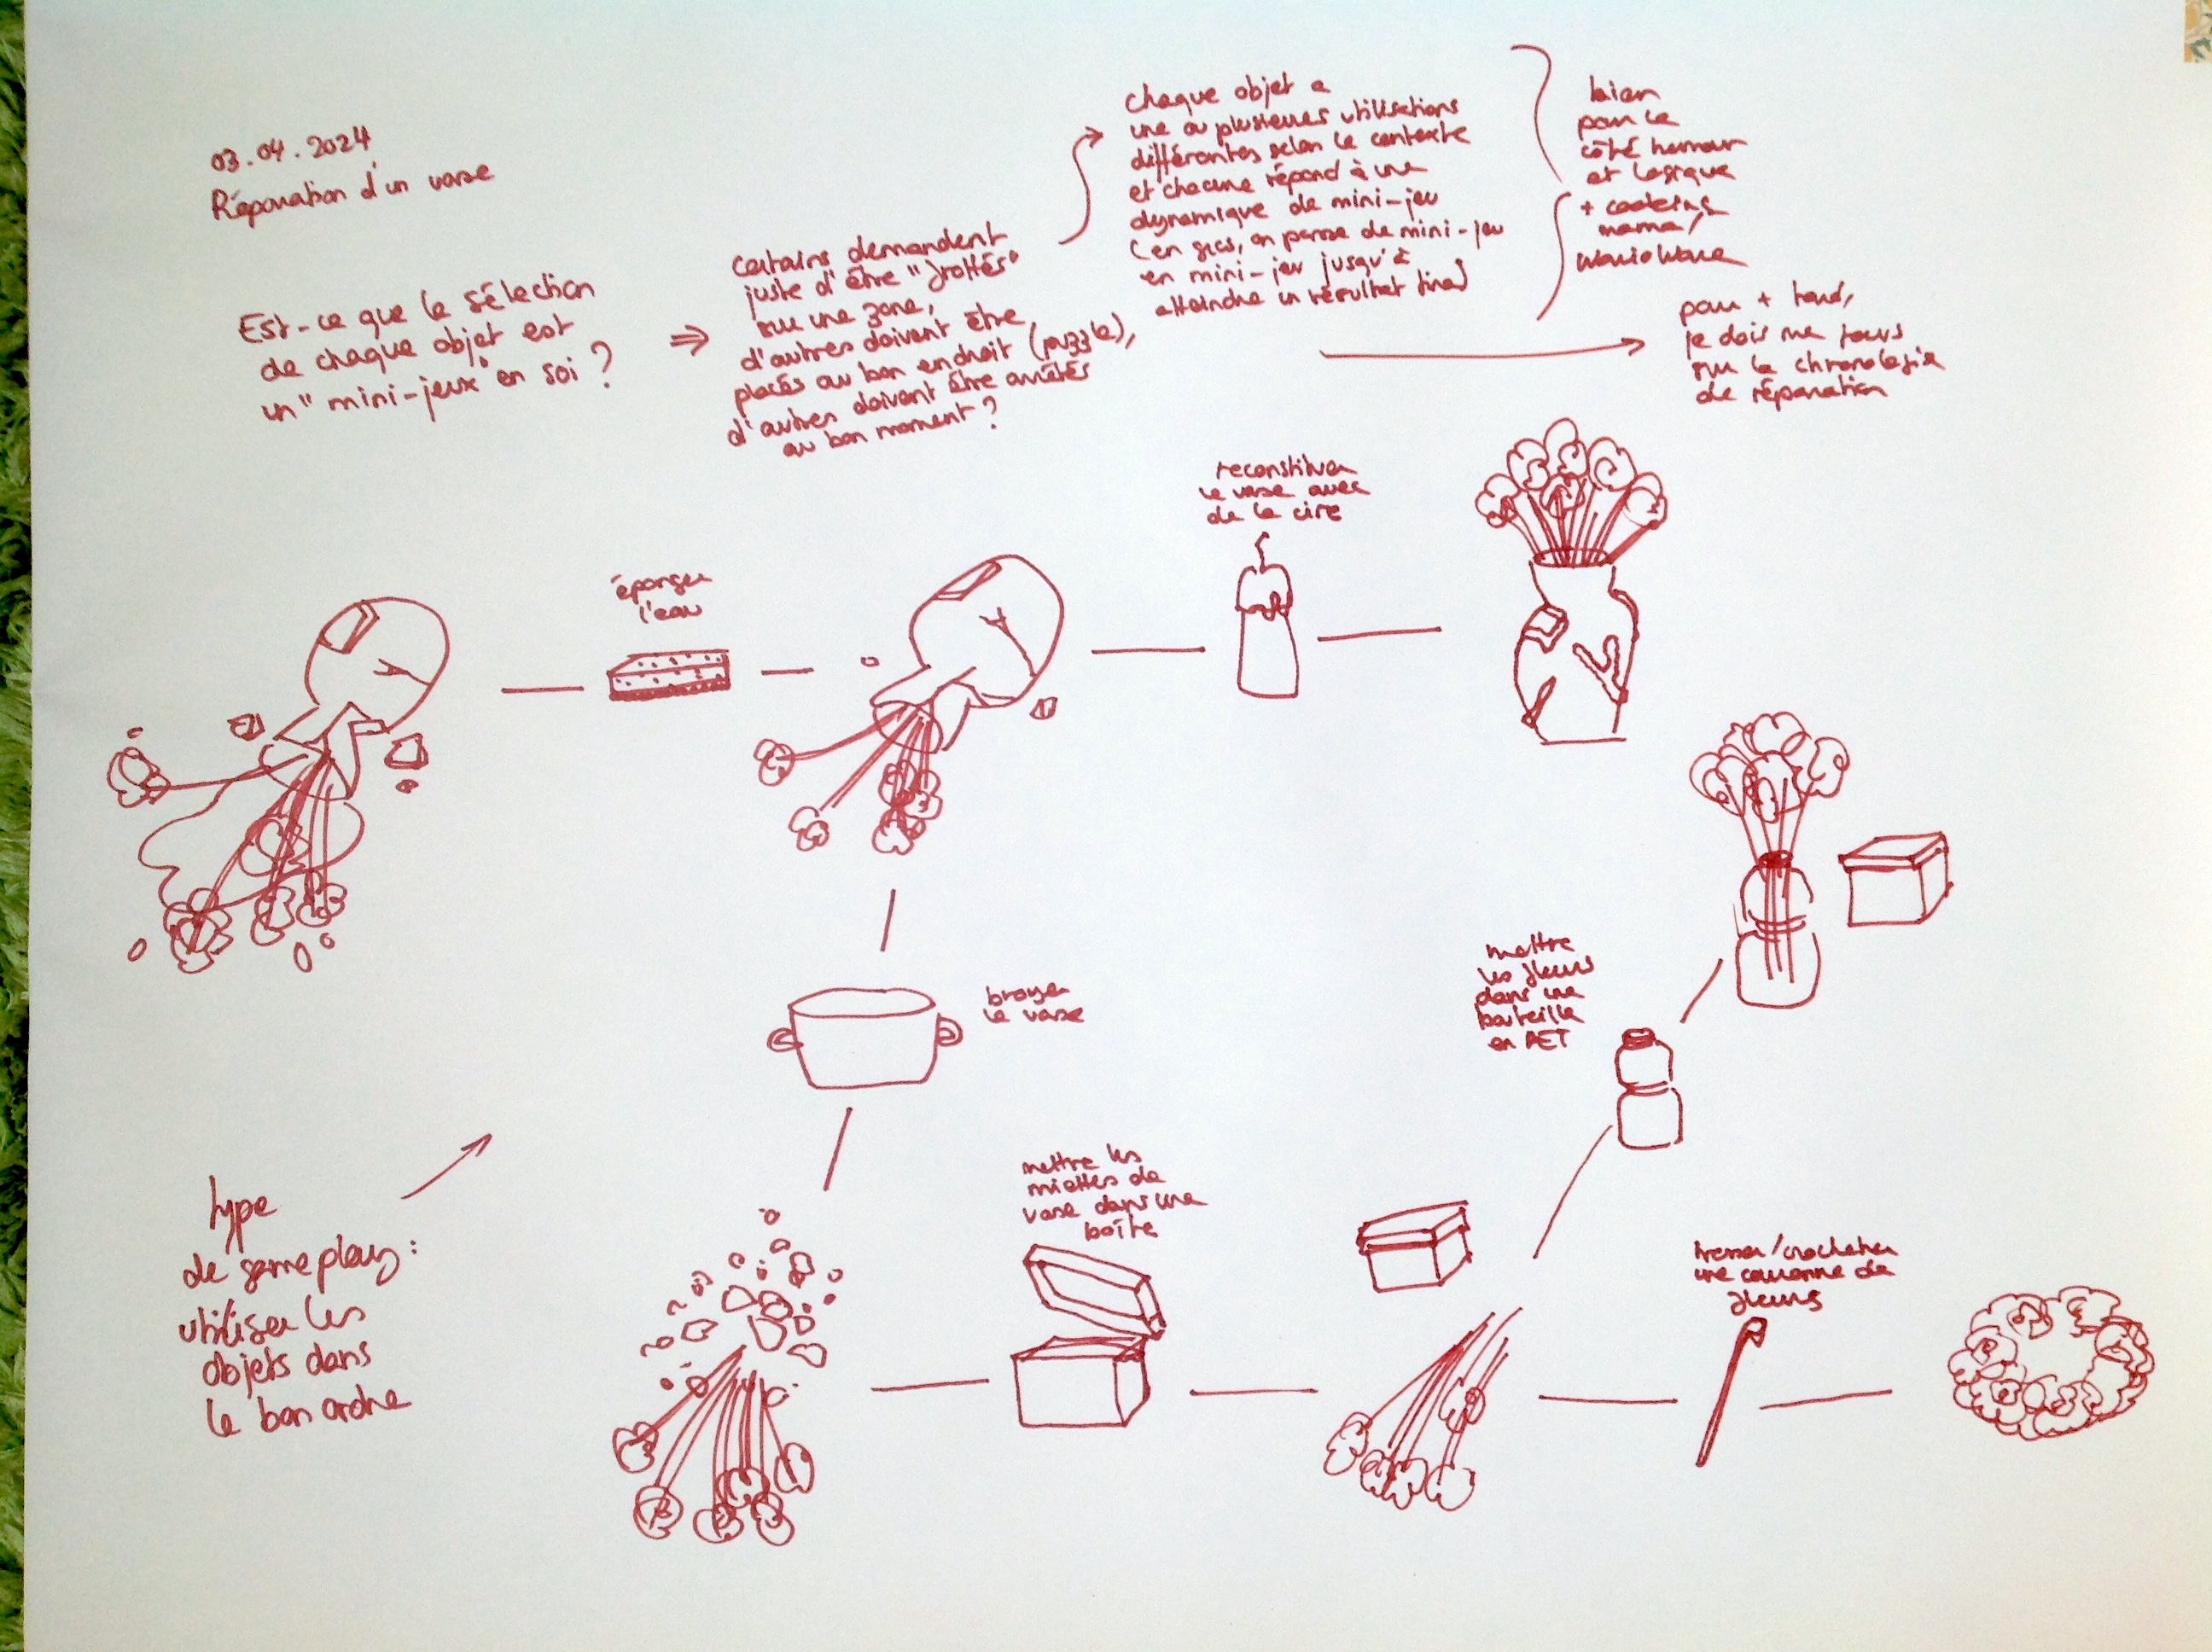 03.04.2024
Réparation d'un vase
Est-ce que la sélection
de chaque objet est
un "mini-jeux" en soi ?
⇒
certains demandent
juste d'être "frottés"
sur une zone,
d'autres doivent être
placés au bon endroit (puzzle),
d'autres doivent être arrêtés
au bon moment ?
chaque objet a
une ou plusieurs utilisations
différentes selon le contexte
et chacune répond à une
dynamique de mini-jeu
(en gros, on passe de mini-jeu
en mini-jeu jusqu'à
atteindre un résultat final)
bien
pour le
côté humour
et logique
+ cooking
mama/
WarioWare
pour + tard,
je dois me focus
sur la chronologie
de réparation
éponger
l'eau
reconstituer
le vase avec
de la cire
broyer
le vase
mettre
les fleurs
dans une
bouteille
en PET
type
de gameplay :
utiliser les
objets dans
le bon ordre
mettre les
miettes de
vase dans une
boîte
tresser/crocheter
une couronne de
fleurs